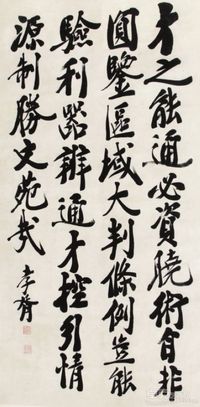 才之能通必資曉術自非
圓鑒區域大判條例豈能
驗利器辨通才控引情
源制勝文苑哉
李